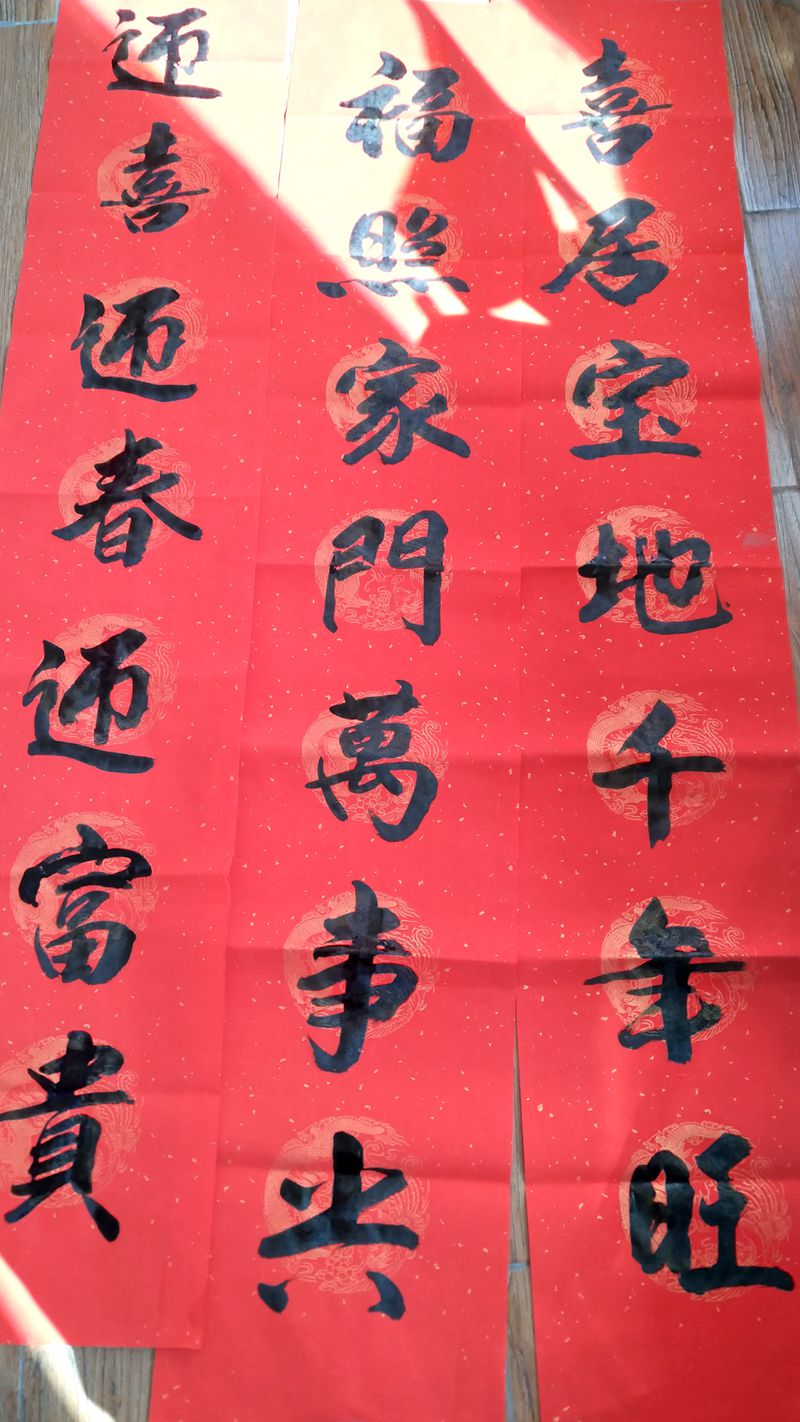 喜居宝地千年旺
福照家門萬事兴
迎喜迎春迎富貴